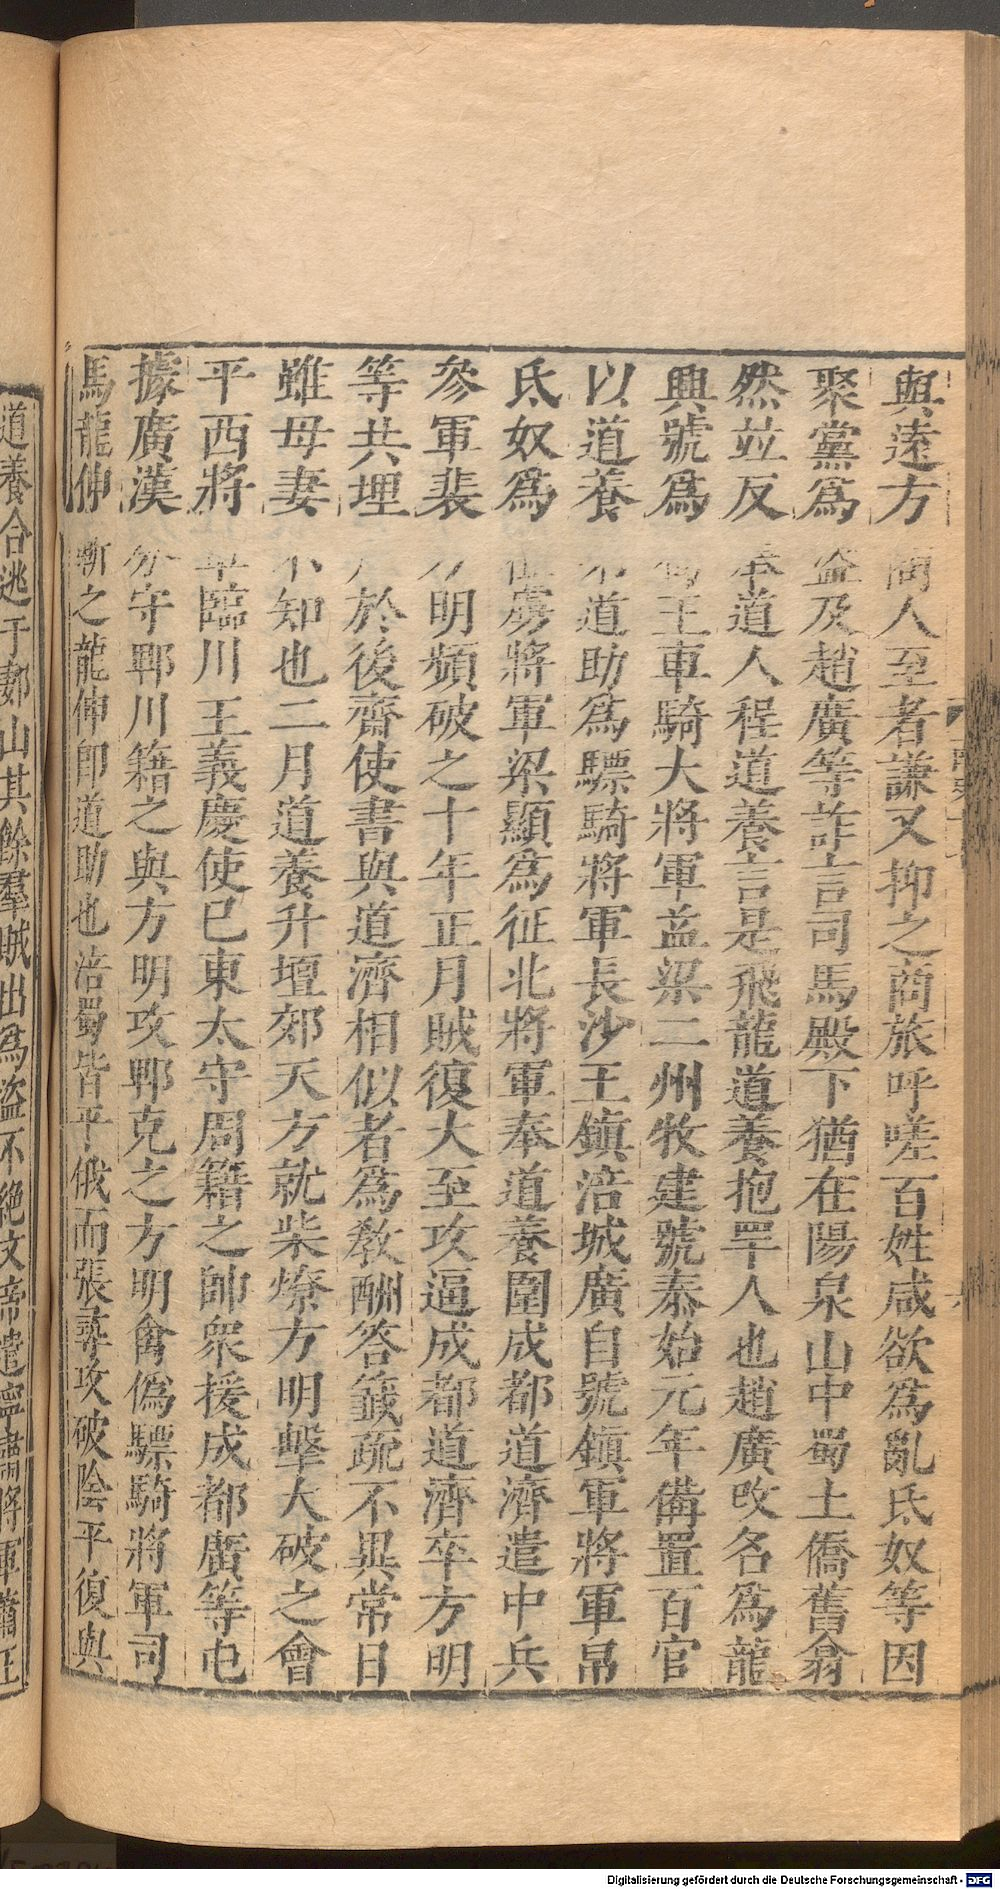 與遠方商人至者謙又抑之商旅呼嗟百姓咸欲爲亂氐奴等因
聚黨爲盜及趙廣等詐言司馬殿下猶在陽泉山中蜀土僑舊翕
然竝反奉道人程道養言是飛龍道養抱罕人也趙廣改名爲龍
興號爲蜀王車騎大將軍益梁二州牧建號泰始元年備置百官
以道養弟道助爲驃騎將軍長沙王鎮涪城廣自號鎮軍將軍帛
氐奴爲征虜將軍梁顯爲征北將軍奉道養圍成都道濟遣中兵
參軍裴方明頻破之十年正月賊復大至攻逼成都道濟卒方明
等共埋尸於後齋使書與道濟相似者爲教酬答籤疏不異常日
雖母妻不知也二月道養升壇郊天方就柴燎方明擊大破之會
平西將軍臨川王義慶使巴東太守周籍之帥衆援成都廣等屯
據廣漢分守郫川籍之與方明攻郫克之方明禽僞驃騎將軍司
馬龍伸斬之龍伸卽道助也涪蜀皆平俄而張尋攻破陰平復與
道養合逃于郪山其餘羣賊出爲盜不絶文帝遣寧朔將軍蕭汪
Digitalisierung gefördert durch die Deutsche Forschungsgemeinschaft - DFG